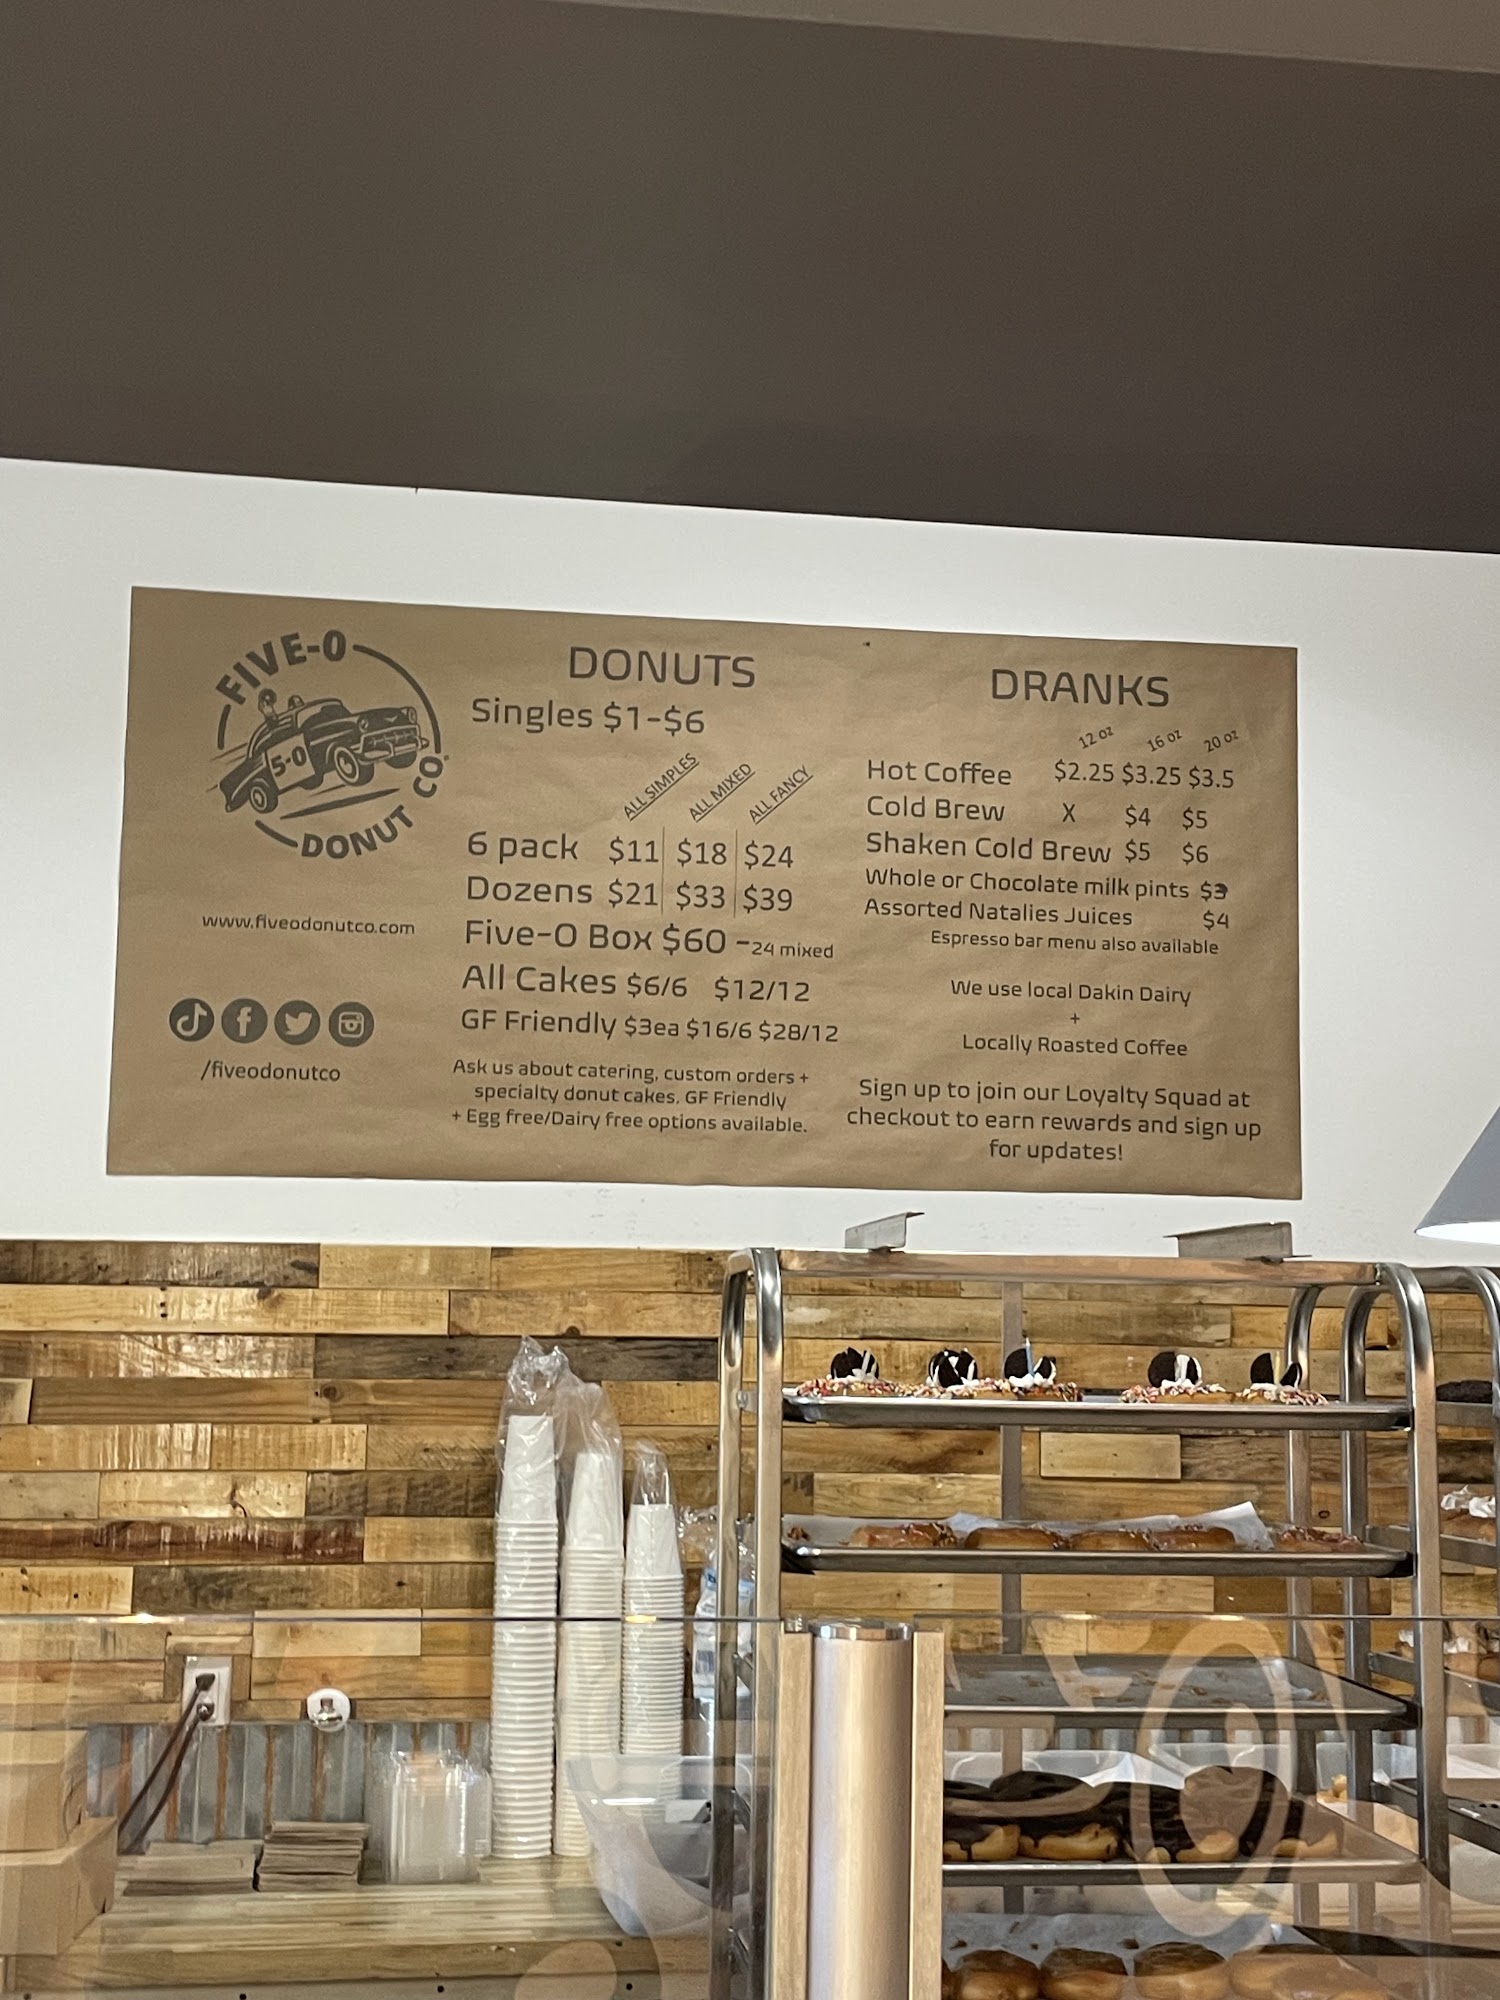 FIVE-O
5-0
DONUT CO.
www.fiveodonutco.com
/fiveodonutco
DONUTS
Singles $1-$6
ALL SIMPLES ALL MIXED ALL FANCY
6 pack $11 $18 $24
Dozens $21 $33 $39
Five-O Box $60 -24 mixed
All Cakes $6/6 $12/12
GF Friendly $3ea $16/6 $28/12
Ask us about catering, custom orders +
specialty donut cakes. GF Friendly
+ Egg free/Dairy free options available.
DRANKS
12 oz 16 oz 20 oz
Hot Coffee $2.25 $3.25 $3.5
Cold Brew X $4 $5
Shaken Cold Brew $5 $6
Whole or Chocolate milk pints $3
Assorted Natalies Juices $4
Espresso bar menu also available
We use local Dakin Dairy
+
Locally Roasted Coffee
Sign up to join our Loyalty Squad at
checkout to earn rewards and sign up
for updates!